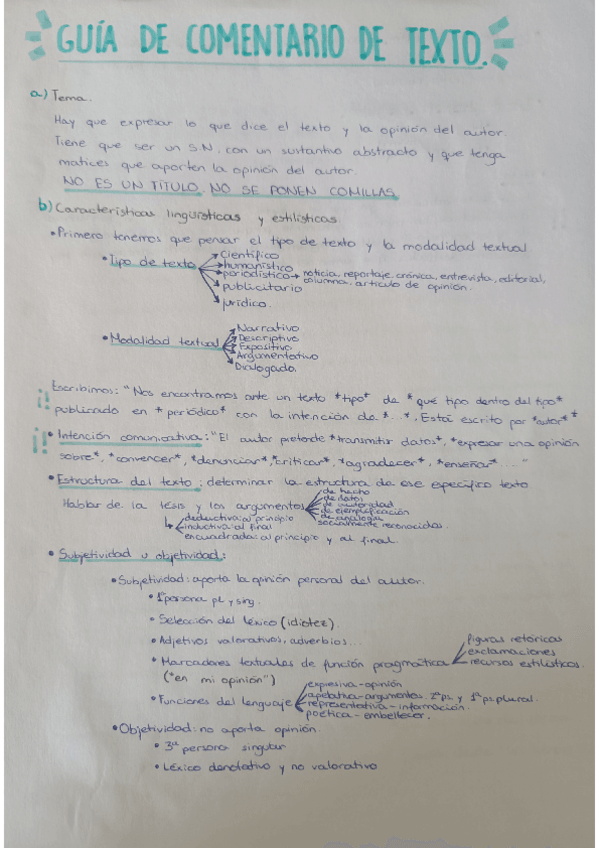 GUÍA DE COMENTARIO DE TEXTO.
a) Tema.
Hay que expresar lo que dice el texto y la opinión del autor.
Tiene que ser un S.N. con un sustantivo abstracto y que tenga
matices que aporten la opinión del autor.
NO ES UN TÍTULO, NO SE PONEN COMILLAS.
b) Características lingüísticas y estilísticas.
• Primero tenemos que pensar el tipo de texto y la modalidad textual
• Tipo de texto
Científico
humanístico
periodístico → noticia, reportaje, crónica, entrevista, editorial,
columna, artículo de opinión.
publicitario
jurídico.
• Modalidad textual
Narrativo
Descriptivo
Expositivo
Argumentativo
Dialogado.
¡! Escribimos: "Nos encontramos ante un texto *tipo* de *qué tipo dentro del tipo*
publicado en *periódico* con la intención de *...*. Está escrito por *autor*"
¡! • Intención comunicativa: "El autor pretende *transmitir datos*, *expresar una opinión
sobre*, *convencer*, *denunciar*, *criticar*, *agradecer*, *enseñar*..."
• Estructura del texto: determinar la estructura de ese específico texto
Hablar de la tesis y los argumentos
de hecho
de datos
de autoridad
de ejemplificación
de analogía
socialmente reconocidas.
deductiva: al principio
inductiva: al final
encuadrada: al principio y al final.
• Subjetividad u objetividad:
• Subjetividad: aporta la opinión personal del autor.
• 1ª persona pl y sing.
• Selección del léxico (idiotez).
• Adjetivos valorativos, adverbios...
• Marcadores textuales de función pragmática
("en mi opinión")
figuras retóricas
exclamaciones
recursos estilísticos.
• Funciones del lenguaje
expresiva - opinión
apelativa - argumentos. 2ª ps. y 1ª ps. plural.
representativa - información.
poética - embellecer.
• Objetividad: no aporta opinión
• 3ª persona singular
• Léxico denotativo y no valorativo